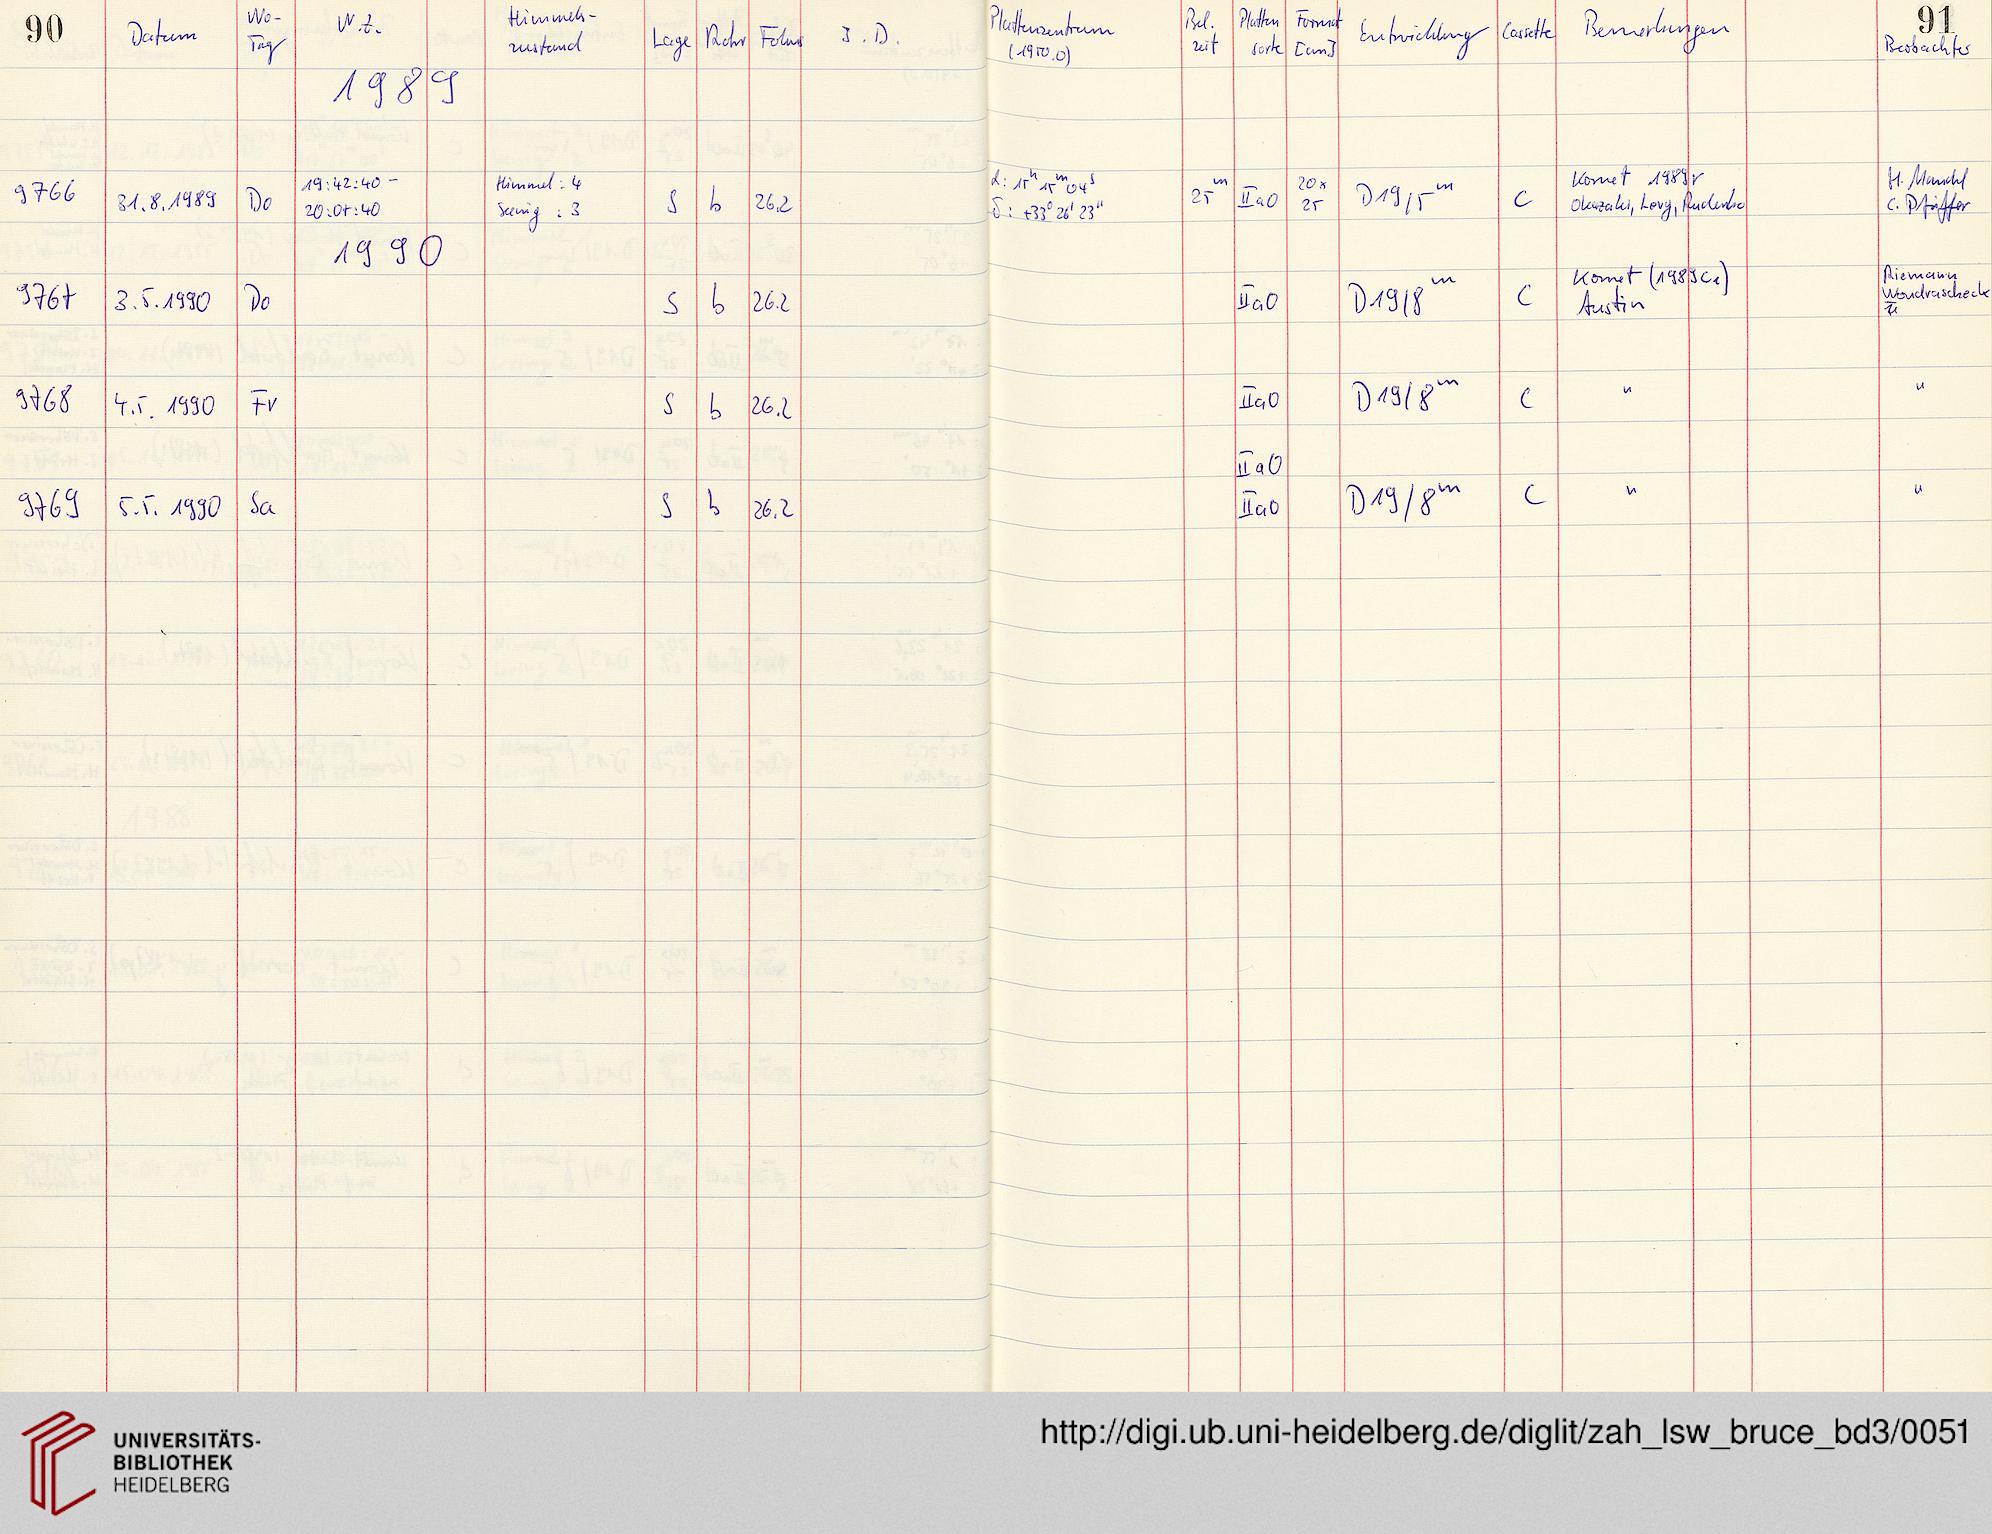 90
Datum Wo-Tag W.Z. Himmels-zustand Lage Rohr Fokus J.D. Plattenzentrum (1950.0) Bel. zeit Platten sorte Format [cm] Entwicklung Cassette Bemerkungen Beobachter
91
1989
9766 31.8.1989 Do 19:42:40 - 20:07:40 Himmel: 4 Seeing: 3 S b 26.2 α: 15h 15m 04s δ: +33° 26' 23" 25m IIaO 20x25 D19/5m C Komet 1989r Okazaki, Levy, Rudenko H. Mandel C. Pfeiffer
1990
9767 3.5.1990 Do S b 26.2 IIaO D19/8m C Komet (1989c1) Austin Riemann Wondrascheck
9768 4.5.1990 Fr S b 26.2 IIaO D19/8m C " "
IIaO
9769 5.5.1990 Sa S b 26.2 IIaO D19/8m C " "
UNIVERSITÄTS-
BIBLIOTHEK
HEIDELBERG
http://digi.ub.uni-heidelberg.de/diglit/zah_lsw_bruce_bd3/0051